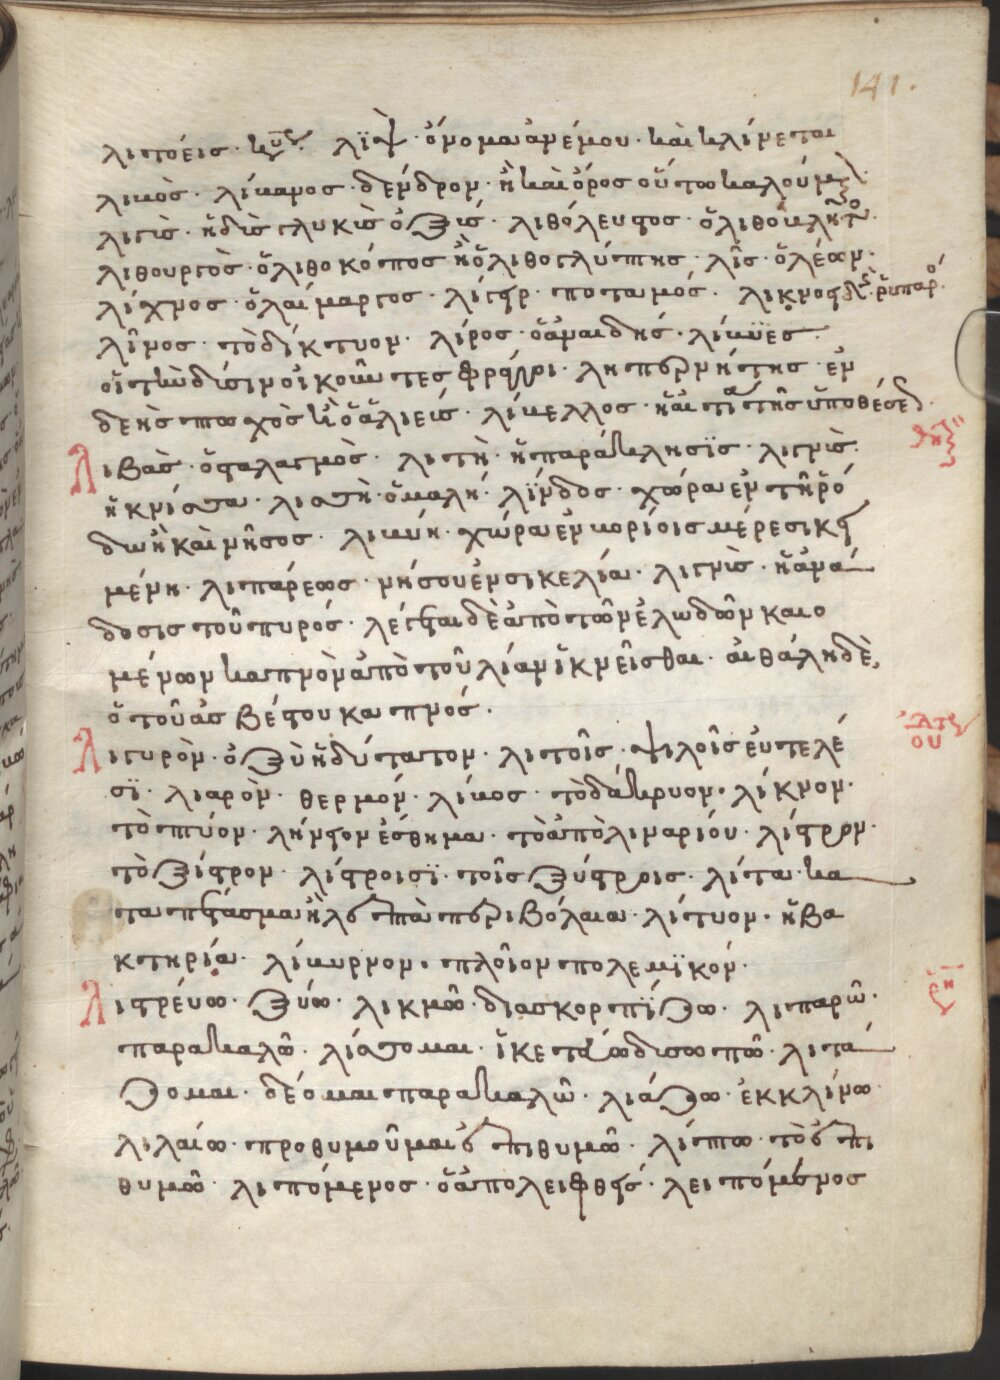 141.
λιτόεις · λὶψ · ὄνομα ἀνέμου · καὶ κλίνεται
λιβὸς · λίβανος · δένδρον · ἢ καὶ ὄρος οὕτω καλούμ
λιγὺς · ἡδὺς γλυκὺς ὀξύς · λιθόλευστος · ὁ λιθόβλητος ·
λιθουργὸς · ὁ λιθοκόπος ἢ ὁ λιθογλύπτης · λῖς · ὁ λέων ·
λίχνος · ὁ λαίμαργος · λίγηρ · ποταμός ·
λῖνος · τὸ δίκτυον · λίρος · ὁ ἀναιδής · λίβυες
οἱ τῶ δύσιν οἰκοῦντες βάρβαροι · λιπερνήτης · ἐν
δεὴς πτωχὸς καὶ ὁ ἁλιεύς · λίβελλος · ἡ αἰτία τῆς ὑποθέσεως
Λιβὰς · ὁ σαλαγμὸς · λιτὴ · ἡ παράκλησϊς · λιγνὺς ·
ἡ κνίσσα · λισσὴ · ὁμαλή · λίνδος · χώρα ἐν τῆ ῥό
δω ἢ καὶ νῆσος · λιβύη · χώρα ἐν βορίοις μέρεσι κει
μένη · λιπάρεως · νήσου ἐν σικελία · λιγνὺς · ἡ ἀνά
δοσις τοῦ πυρός · λέγεται δὲ ἀπὸ τῶν ἐλωδῶν καιο
μένων καπνὸν ἀπὸ τοῦ λίαν ἱκνεῖσθαι · αἰθάλη δὲ,
ὁ τοῦ ἀσβέστου καπνός ·
Λιγυρὸν · ὀξὺ ἡδύτατον · λιτοῖς · ψιλοῖς εὐτελέ
σϊ · λιαρὸν · θερμόν · λίβος · τὸ δάκρυον · λίκνον ·
τὸ πτύον · λήντον ἔσθημα · τὸ ἀπὸ λιναρίου · λίστρον ·
τὸ ξύστρον · λίστροισϊ · τοῖς ξύστροις · λίτα · κα
ταπετάσματα ἢ λεπτὰ περιβόλαια · λίτυον · ἡ βα
κτηρία · λίβυρνον · πλοῖον πολεμϊκόν ·
Λιστρεύω · ξύω · λικμῶ · διασκορπϊζω · λιπαρῶ ·
παρακαλῶ · λίσσομαι · ἱκετεύω δισωπῶ · λιτά
ζομαι · δέομαι παρακαλῶ · λιάζω · ἐκκλίνω
λιλαίω · προθυμοῦμαι ἐπιθυμῶ · λίπτω · τὸ ἐπι
θυμῶ · λιπόμενος · ὁ ἀπολειφθείς · λειπόμενος